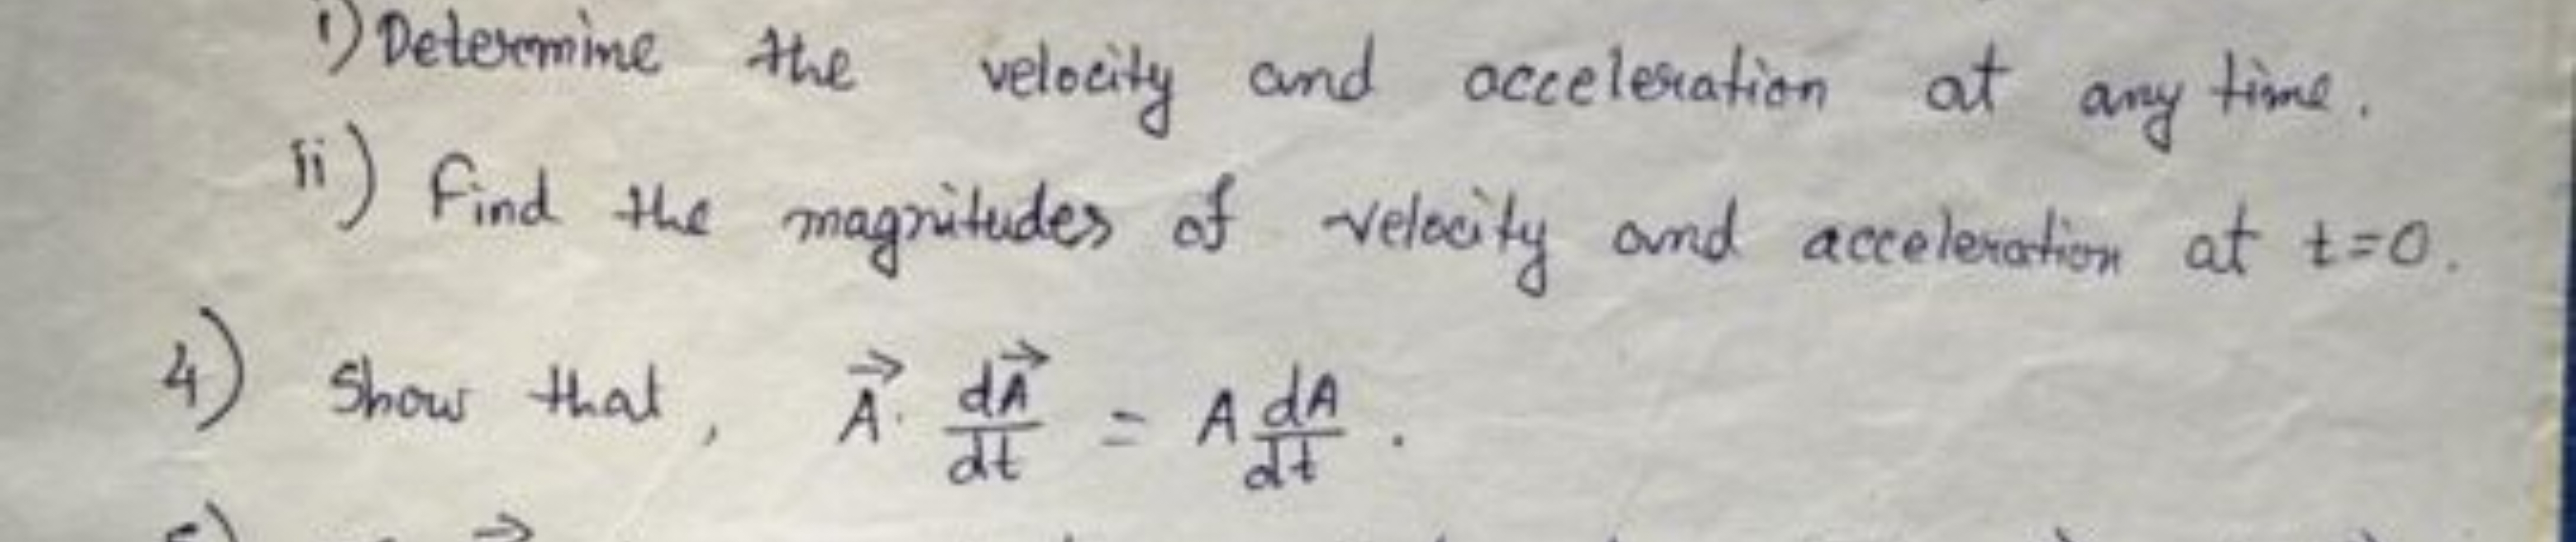 i) Determine the velocity and acceleration at any time.
ii) Find the magnitudes of velocity and acceleration at t=0.
4) Show that, $\vec{A} \cdot \frac{d\vec{A}}{dt} = A \frac{dA}{dt}$.